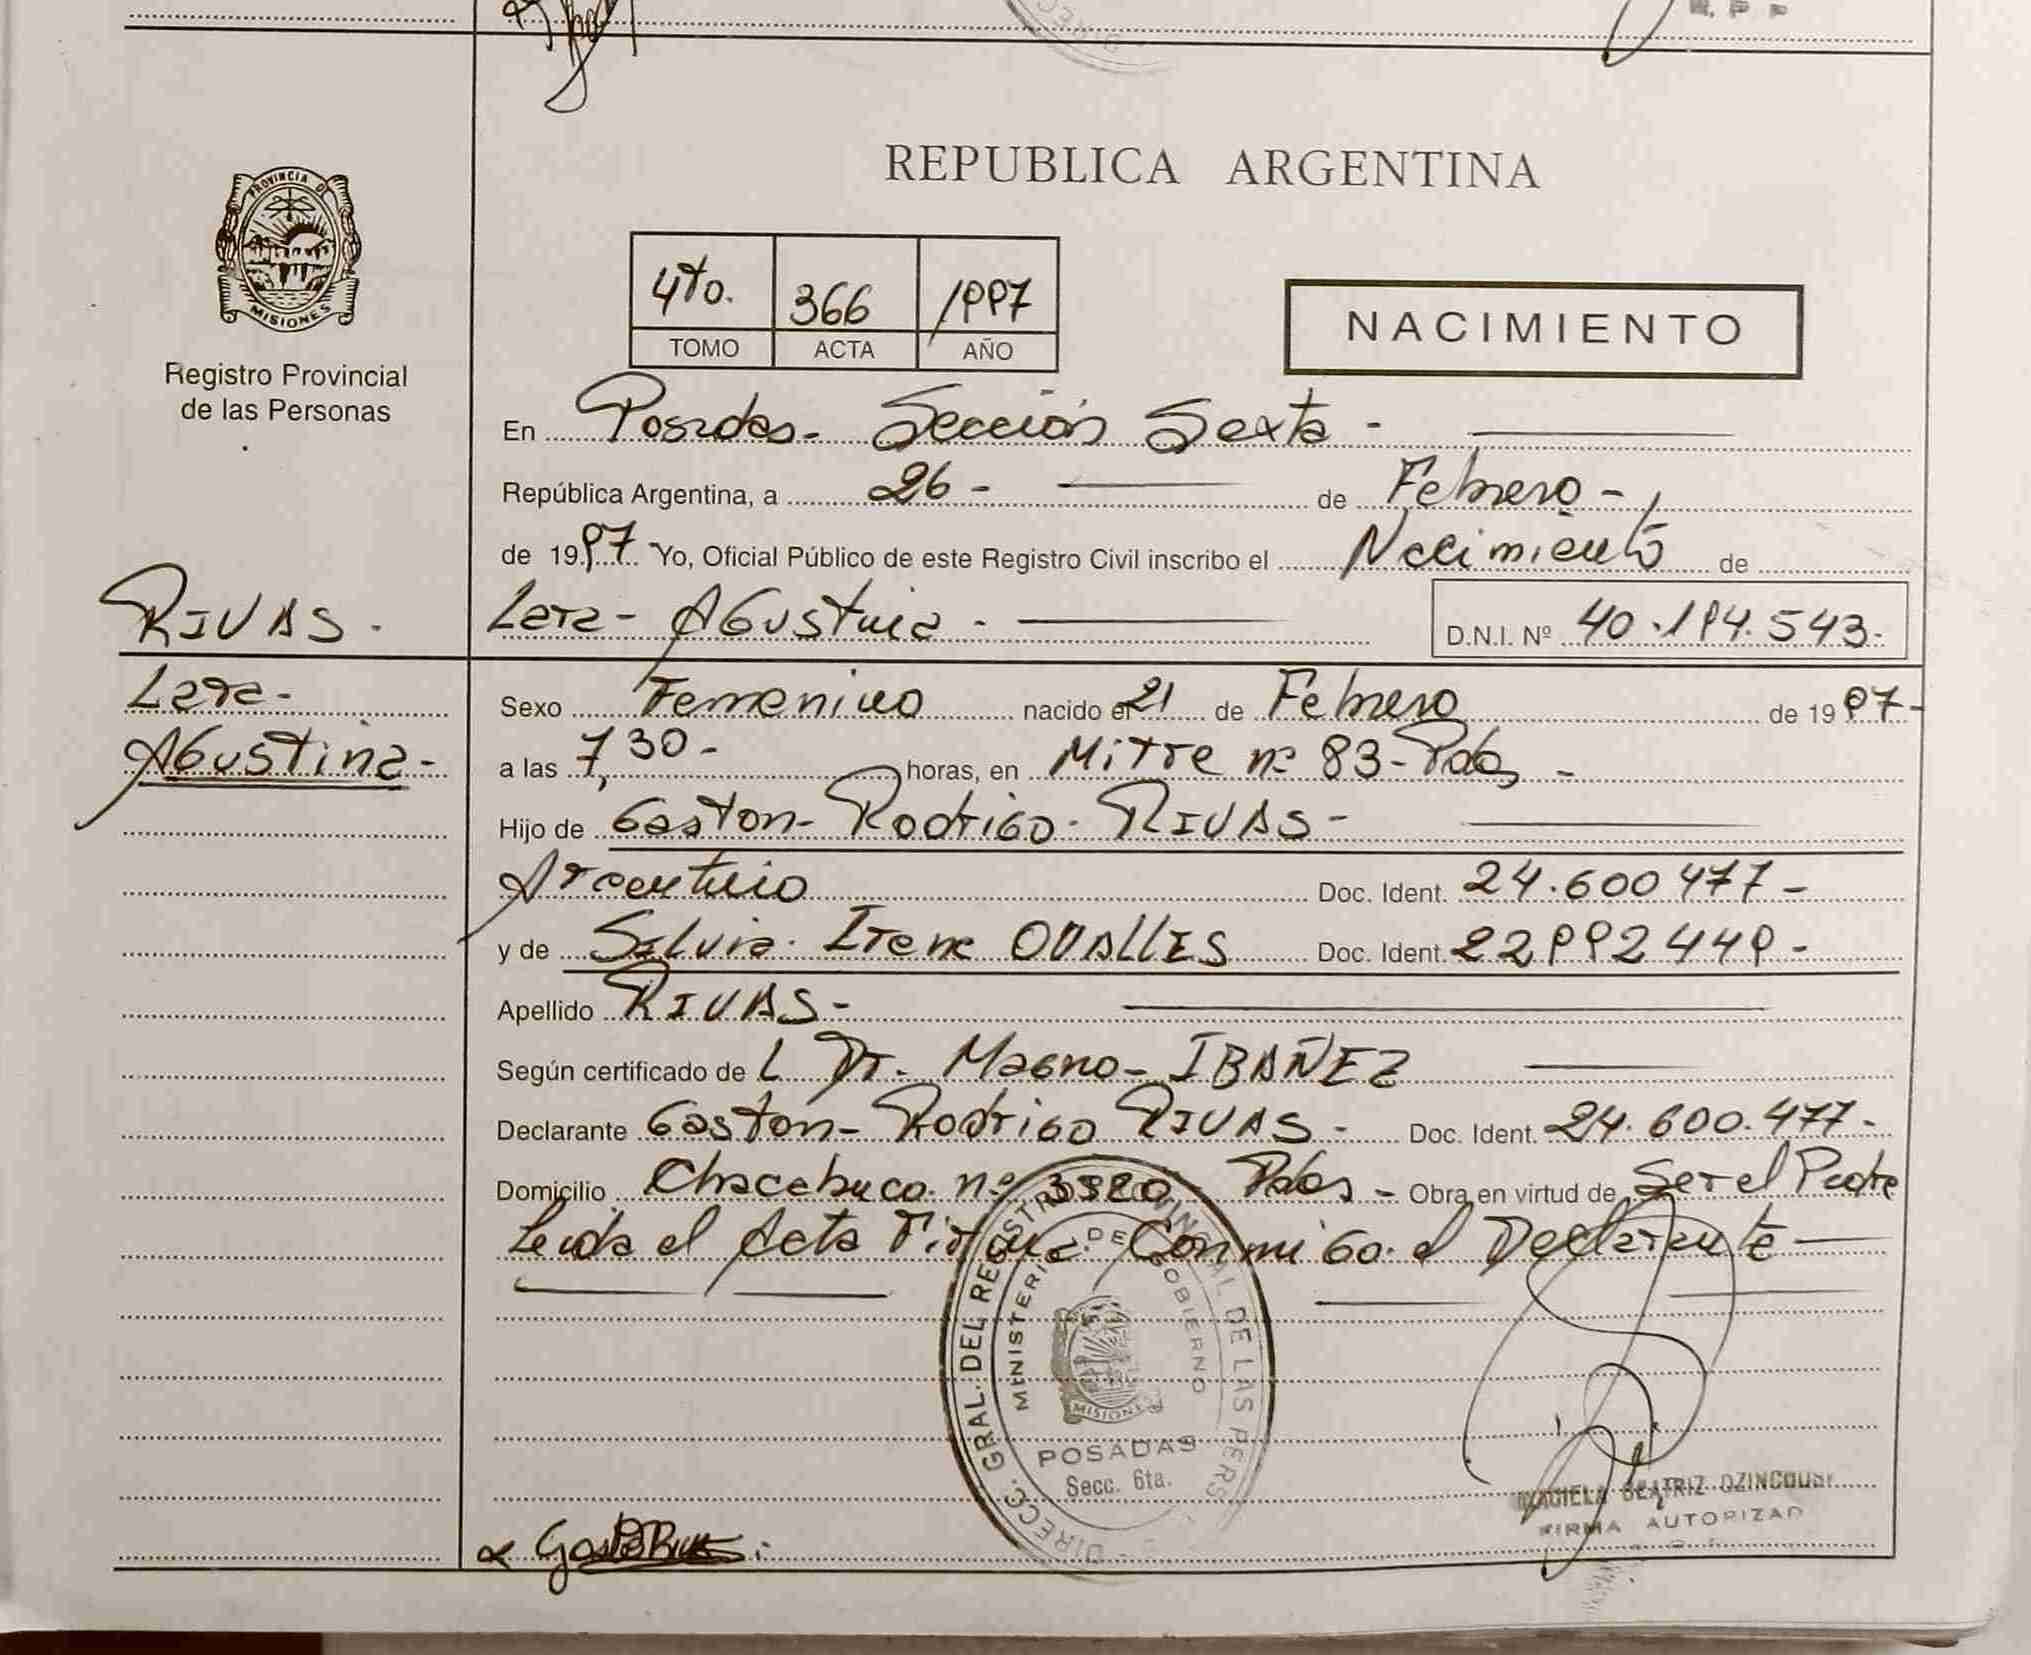 REPUBLICA ARGENTINA
PROVINCIA DE
MISIONES
Registro Provincial
de las Personas
4to. 366 1997
TOMO ACTA AÑO
NACIMIENTO
En Posadas- Sección Sexta -
República Argentina, a 26 - de Febrero -
de 1997 Yo, Oficial Público de este Registro Civil inscribo el Nacimiento de
RIVAS - Lara - Agustina - D.N.I. Nº 40.194.543-
Lara - Sexo Femenino nacido el 21 de Febrero de 1997-
Agustina - a las 7,30 - horas, en Mitre nº 83 - Pdas -
Hijo de Gaston - Rodrigo - RIVAS -
Argentino Doc. Ident. 24.600 477 -
y de Silvia. Irene OVALLES Doc. Ident. 22992449 -
Apellido RIVAS -
Según certificado de L Dr. Magno - IBAÑEZ
Declarante Gaston - Rodrigo RIVAS - Doc. Ident. 24.600.477 -
Domicilio Chacabuco nº Pdas - Obra en virtud de Ser el Padre
Leida el Acta Firma Conmigo el Declarante
DIRECC. GRAL. DEL REGISTRO PROVINCIAL DE LAS PERS
MINISTERIO DE GOBIERNO
MISIONES
POSADAS
Secc. 6ta.
BEATRIZ
FIRMA AUTORIZAD